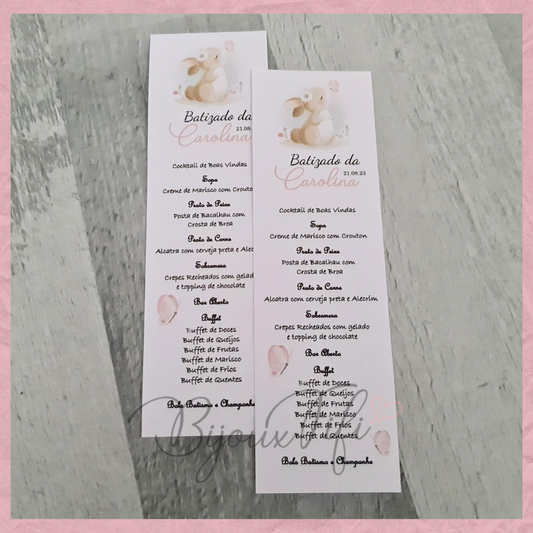 Batizado da
21.08.
Carolina
Cocktail de Boas Vindas
Sopa
Creme de Marisco com Crouton
Prato de Peixe
Posta de Bacalhau com
Crosta de Broa
Prato de Carne
Alcatra com cerveja preta e Alecrim
Sobremesa
Crepes Recheados com gelado
e topping de chocolate
Bar Aberto
Buffet
Buffet de Doces
Buffet de Queijos
Buffet de Frutas
Buffet de Marisco
Buffet de Frios
Buffet de Quentes
Bolo Batismo e Champanhe
Batizado da
21.08.23
Carolina
Cocktail de Boas Vindas
Sopa
Creme de Marisco com Crouton
Prato de Peixe
Posta de Bacalhau com
Crosta de Broa
Prato de Carne
Alcatra com cerveja preta e Alecrim
Sobremesa
Crepes Recheados com gelado
e topping de chocolate
Bar Aberto
Buffet
Buffet de Doces
Buffet de Queijos
Buffet de Frutas
Buffet de Marisco
Buffet de Frios
Buffet de Quentes
Bolo Batismo e Champanhe
BijouxFifi